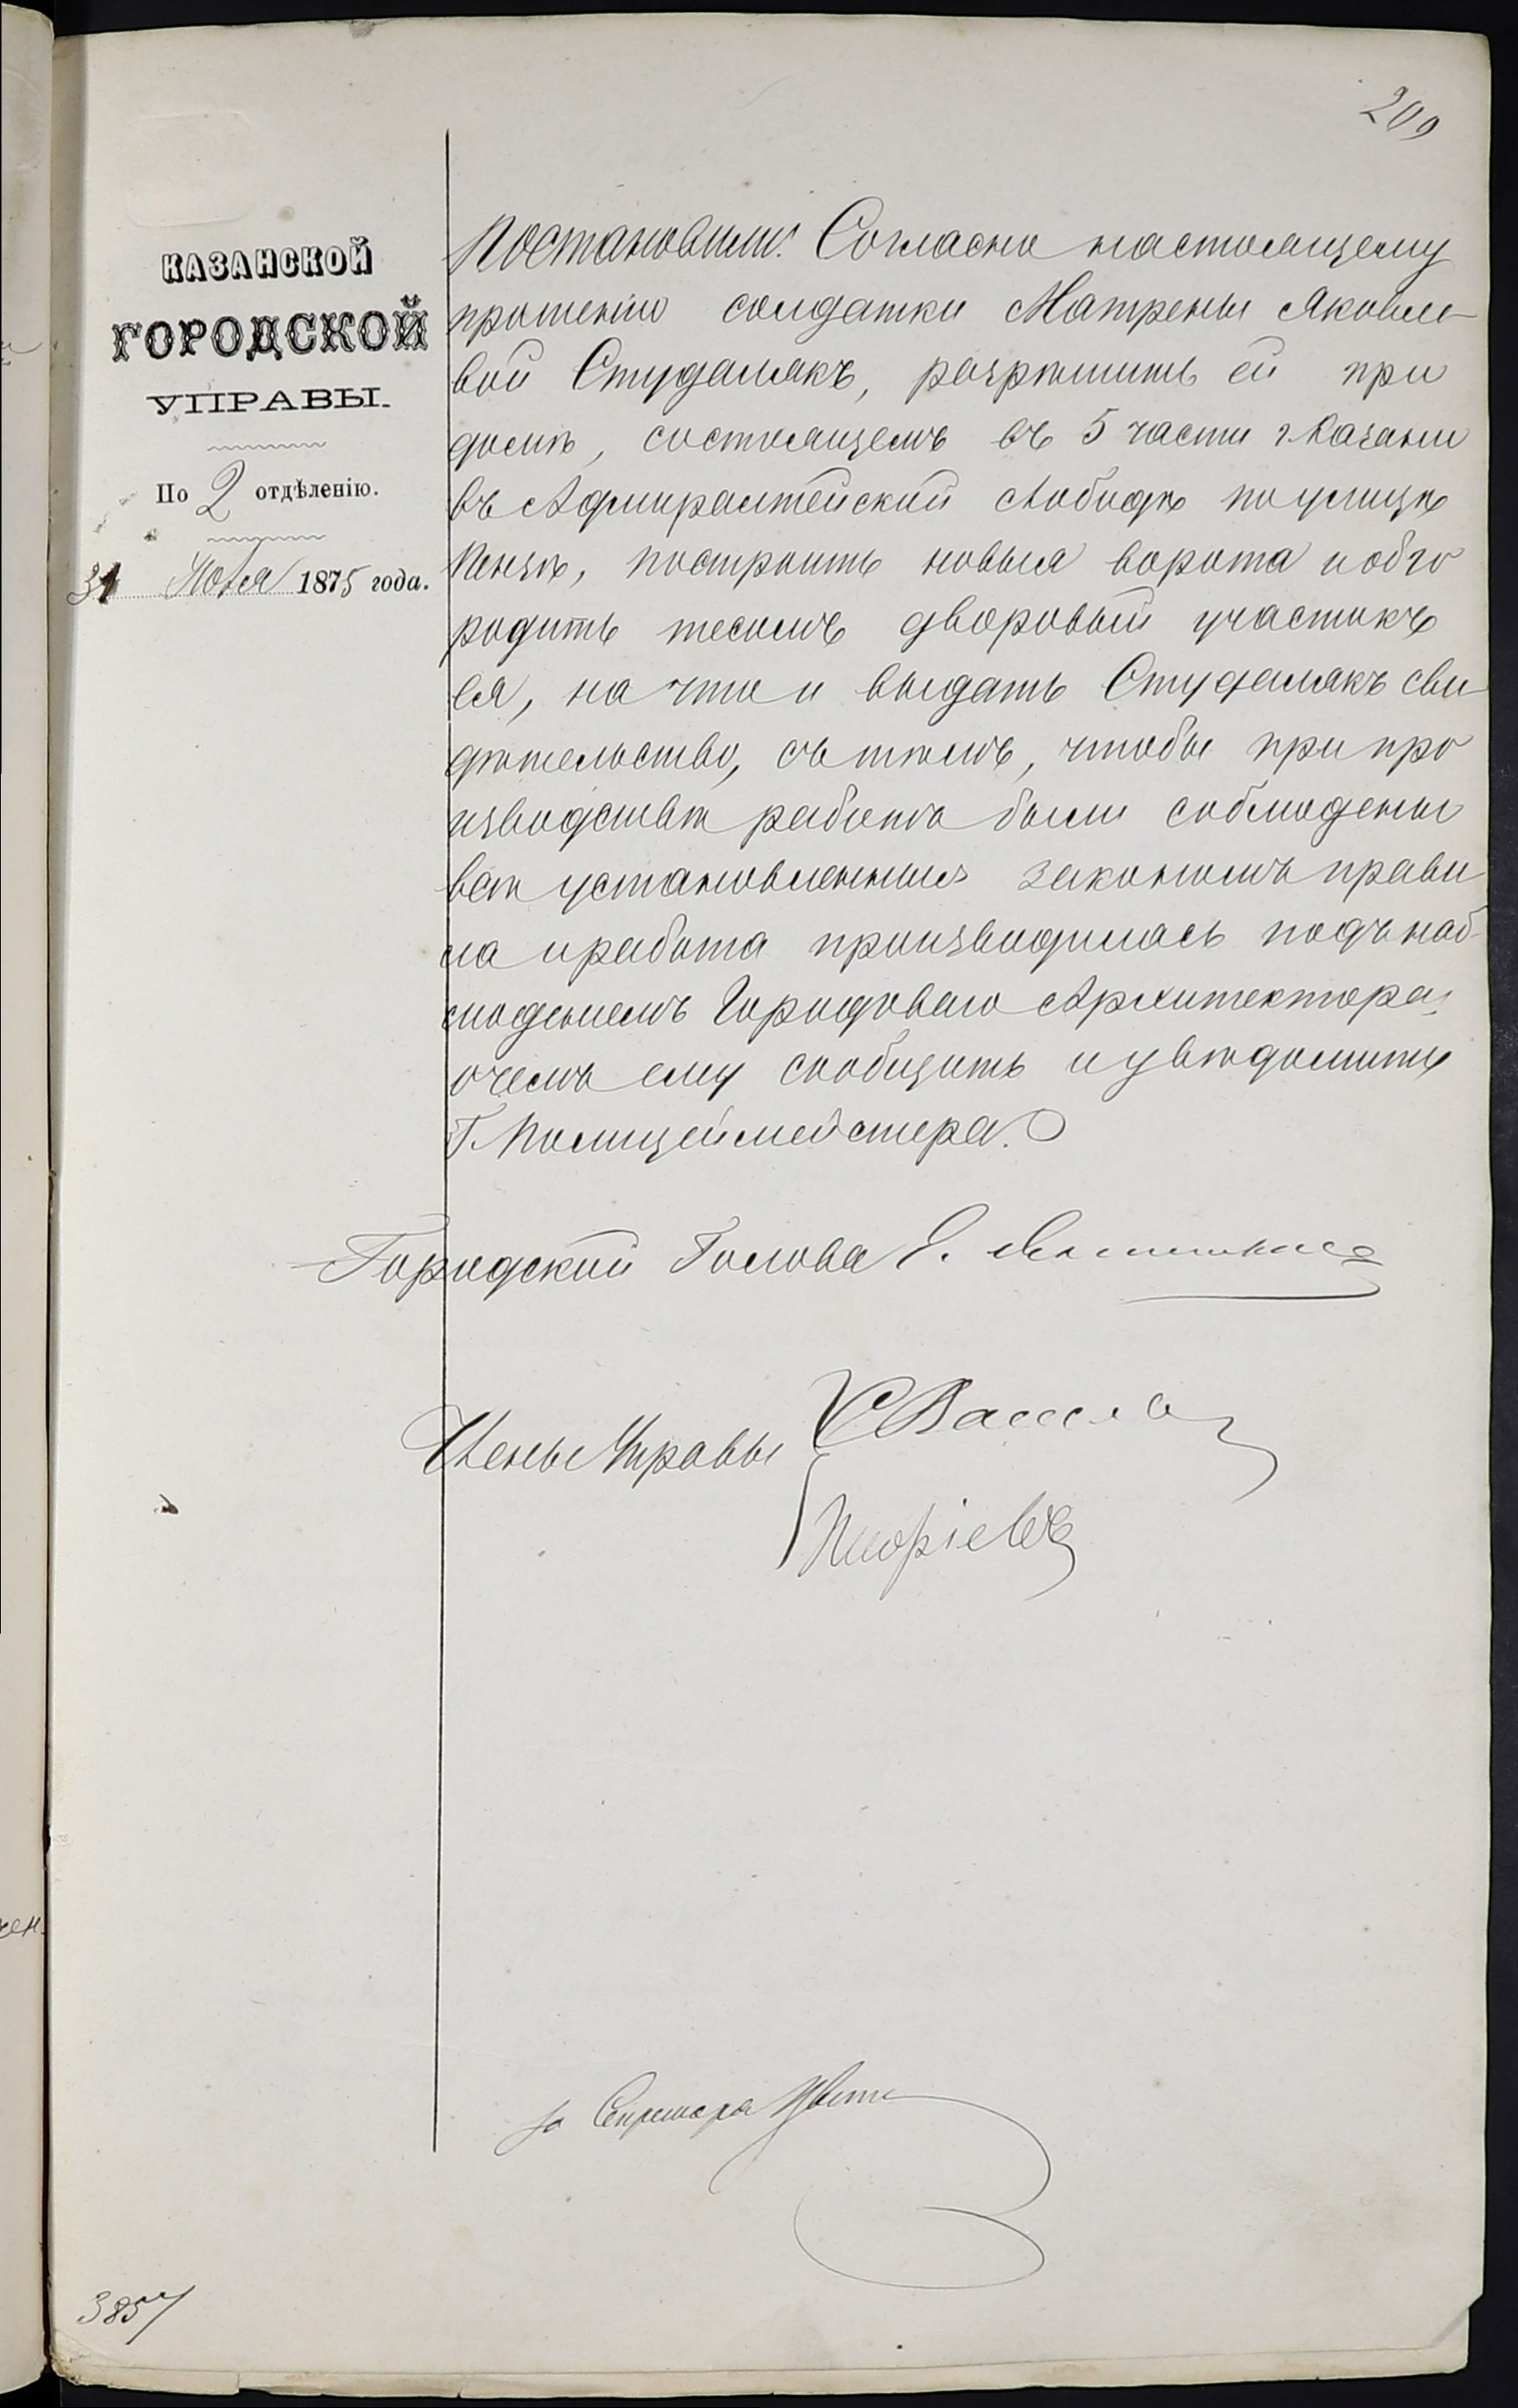 209
КАЗАНСКОЙ
ГОРОДСКОЙ
УПРАВЫ.
По 2 отдѣленію.
31 Іюля 1875 года.
Постановили: Согласно настоящему
прошенію солдатки Матрены Яковле-
вой Студалякъ, разрѣшить ей при
домѣ, состоящемъ въ 5 части г. Казани
въ Адмиралтейской слободѣ по улицѣ
построить новыя ворота и обго
родить тесомъ дворовый участокъ
ея, на что и выдать Студалякъ сви
дѣтельство, съ тѣмъ, чтобы при про
изводствѣ работъ были соблюдены
всѣ установленныя закономъ прави
ла и работа производилась подъ наб-
люденіемъ Городоваго Архитектора,
о чемъ ему сообщить и увѣдомить
Г. Полицеймейстера.
Городской Голова Э.
Члены Управы
За Секретаря
3857